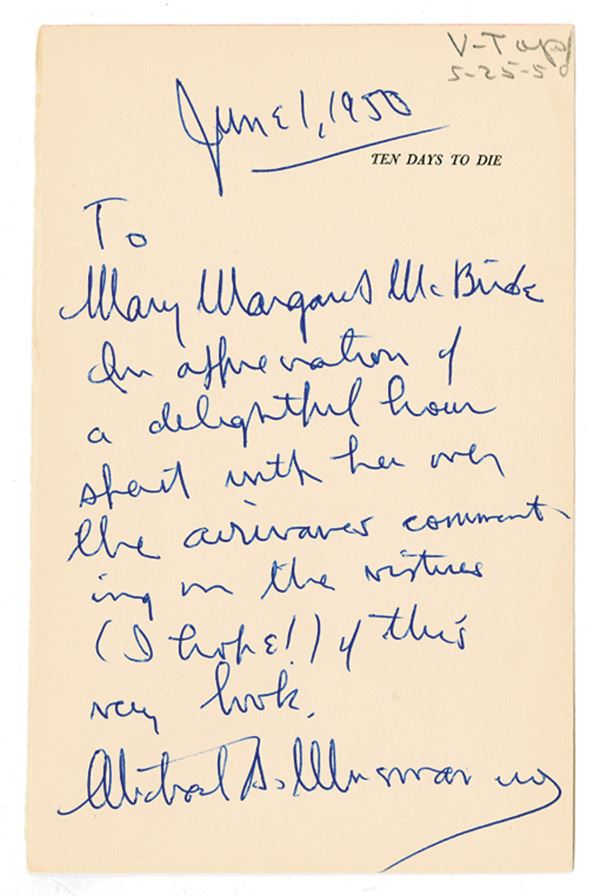 V-T
5-25-50
June 1, 1950
TEN DAYS TO DIE
To
Mary Margaret McBride
In appreciation of
a delightful hour
spent with her over
the airwaves comment-
ing on the virtues
(I hope!) of this
very book.
Michael A. Musmanno